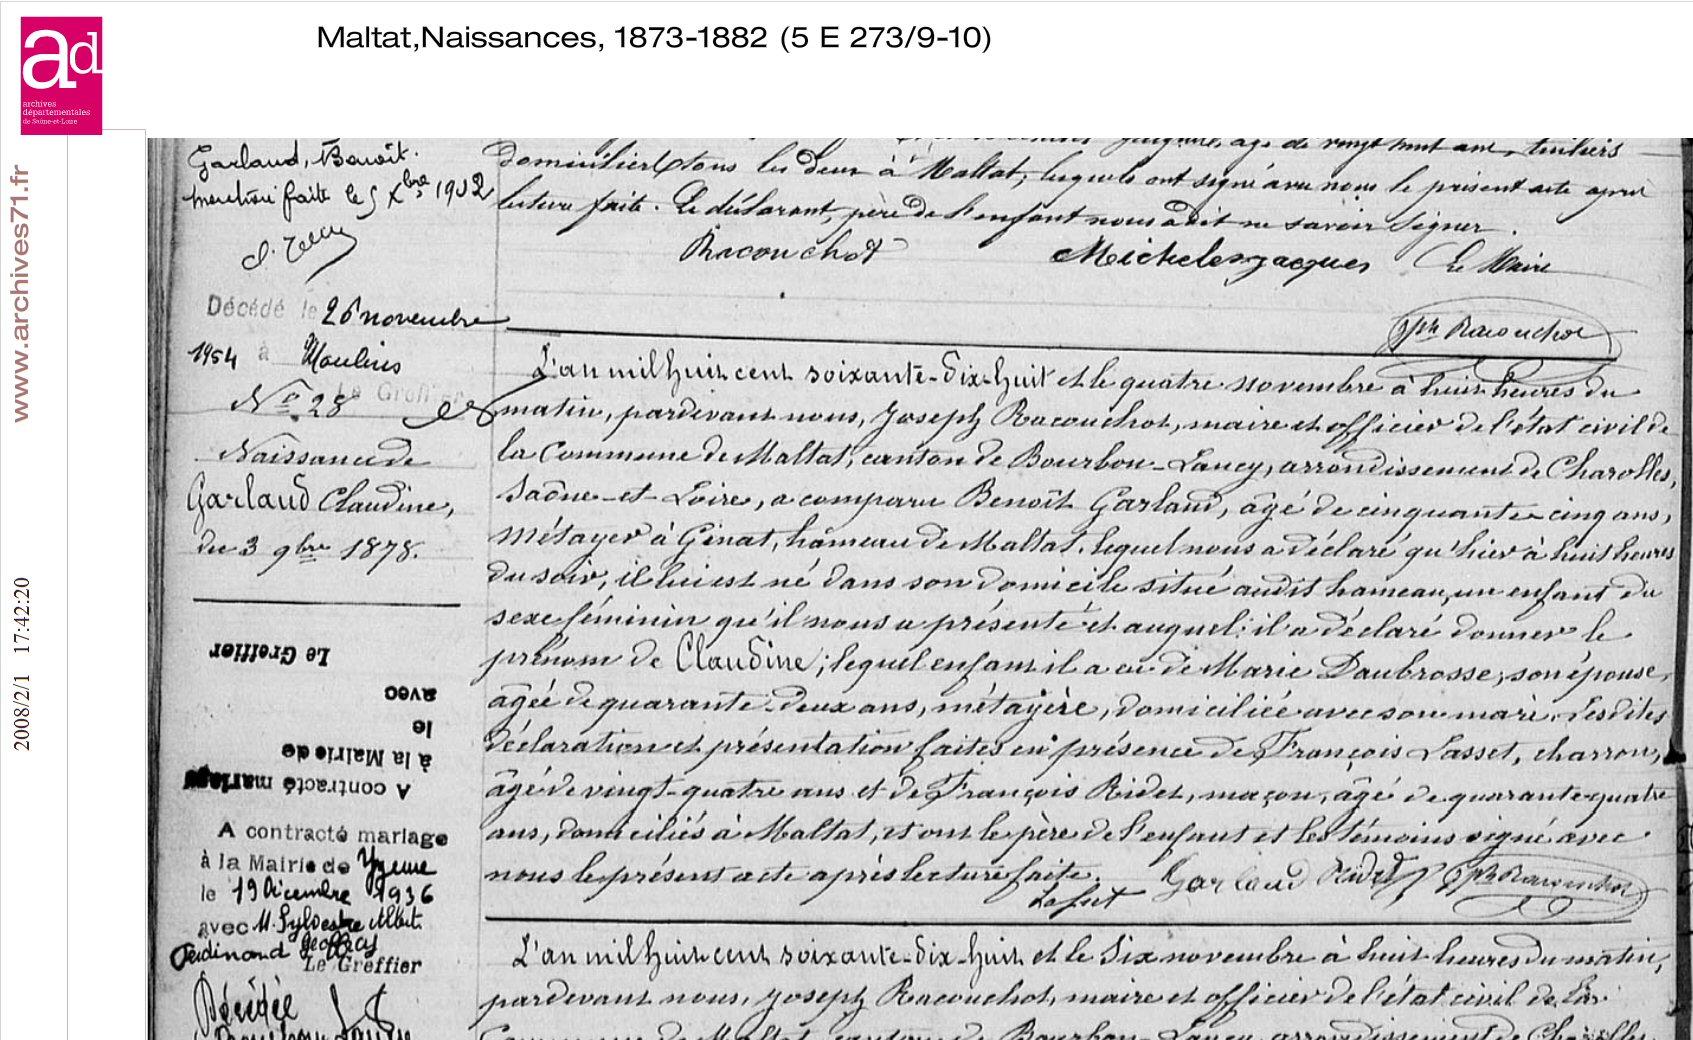 Maltat,Naissances, 1873-1882 (5 E 273/9-10)
ad
archives
départementales
de Saône-et-Loire
www.archives71.fr
2008/2/1 17:42:20
Garlaud, Benoît.
mention faite le 5 Xbre 1902
Décédé le 26 novembre
1954 à Moulins
Le Greffier
N° 28
Naissance de
Garlaud Claudine,
du 3 9bre 1878.
Le Greffier
avec
le
à la Mairie de
A contracté mariage
A contracté mariage
à la Mairie de Yzeure
le 19 Décembre 1936
avec M. Sylvestre Albert
Ferdinand Geoffray
Le Greffier
Décédée
âgé de vingt huit ans, tuiliers
domiciliés tous les deux à Maltat, lesquels ont signé avec nous le présent acte après
lecture faite. Le déclarant, père de l'enfant nous a dit ne savoir signer.
Racouchot Micheles jacques Le Maire
Jph Racouchot
L'an mil huit cent soixante-dix-huit et le quatre novembre à huit heures du
matin, pardevant nous, Joseph Racouchot, maire et officier de l'état civil de
la Commune de Maltat, canton de Bourbon-Lancy, arrondissement de Charolles,
Saône-et-Loire, a comparu Benoît Garlaud, âgé de cinquante-cinq ans,
métayer à Génat, hameau de Maltat, lequel nous a déclaré qu'hier à huit heures
du soir, il lui est né dans son domicile situé audit hameau, un enfant du
sexe féminin qu'il nous a présenté et auquel il a déclaré donner le
prénom de Claudine; lequel enfant il a eu de Marie Daubrosse, son épouse,
âgée de quarante-deux ans, métayère, domiciliée avec son mari. Lesdites
déclaration et présentation faites en présence de François Lasset, charron,
âgé de vingt-quatre ans et de François Ridet, maçon, âgé de quarante-quatre
ans, domiciliés à Maltat, et ont le père de l'enfant et les témoins signé avec
nous le présent acte après lecture faite. Garlaud Ridet Jph Racouchot
L'an mil huit cent soixante-dix-huit et le six novembre à huit heures du matin,
pardevant nous, Joseph Racouchot, maire et officier de l'état civil de la
Commune de Maltat, canton de Bourbon-Lancy, arrondissement de Charolles,